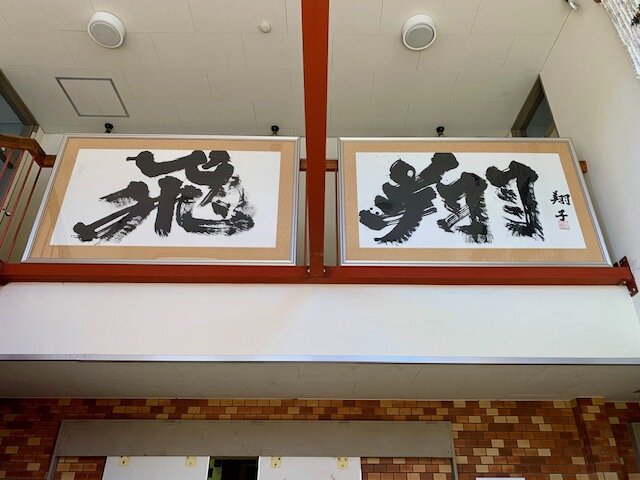 飛翔
翔子